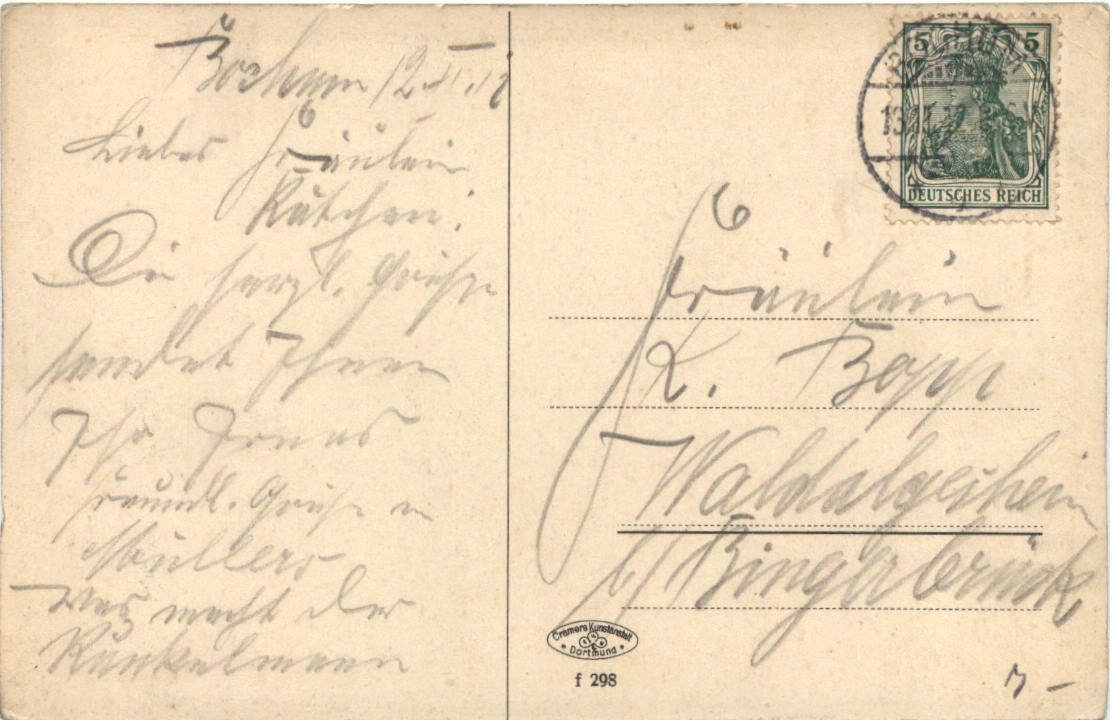 Bochum 12.XI.12
Liebes Fräulein
Kätchen!
Die herzl. Grüße
sendet Ihnen
Ihr
freundl. Grüße an
Müllers
Was macht der
Runkelmann
5 5
DEUTSCHES REICH
Fräulein
K. Bopp
Waldalgesheim
b/ Bingerbrück
Cramers Kunstanstalt
Dortmund
f 298